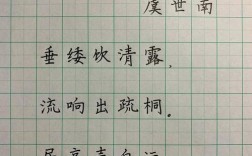 虞世南
垂緌饮清露，
流响出疏桐。